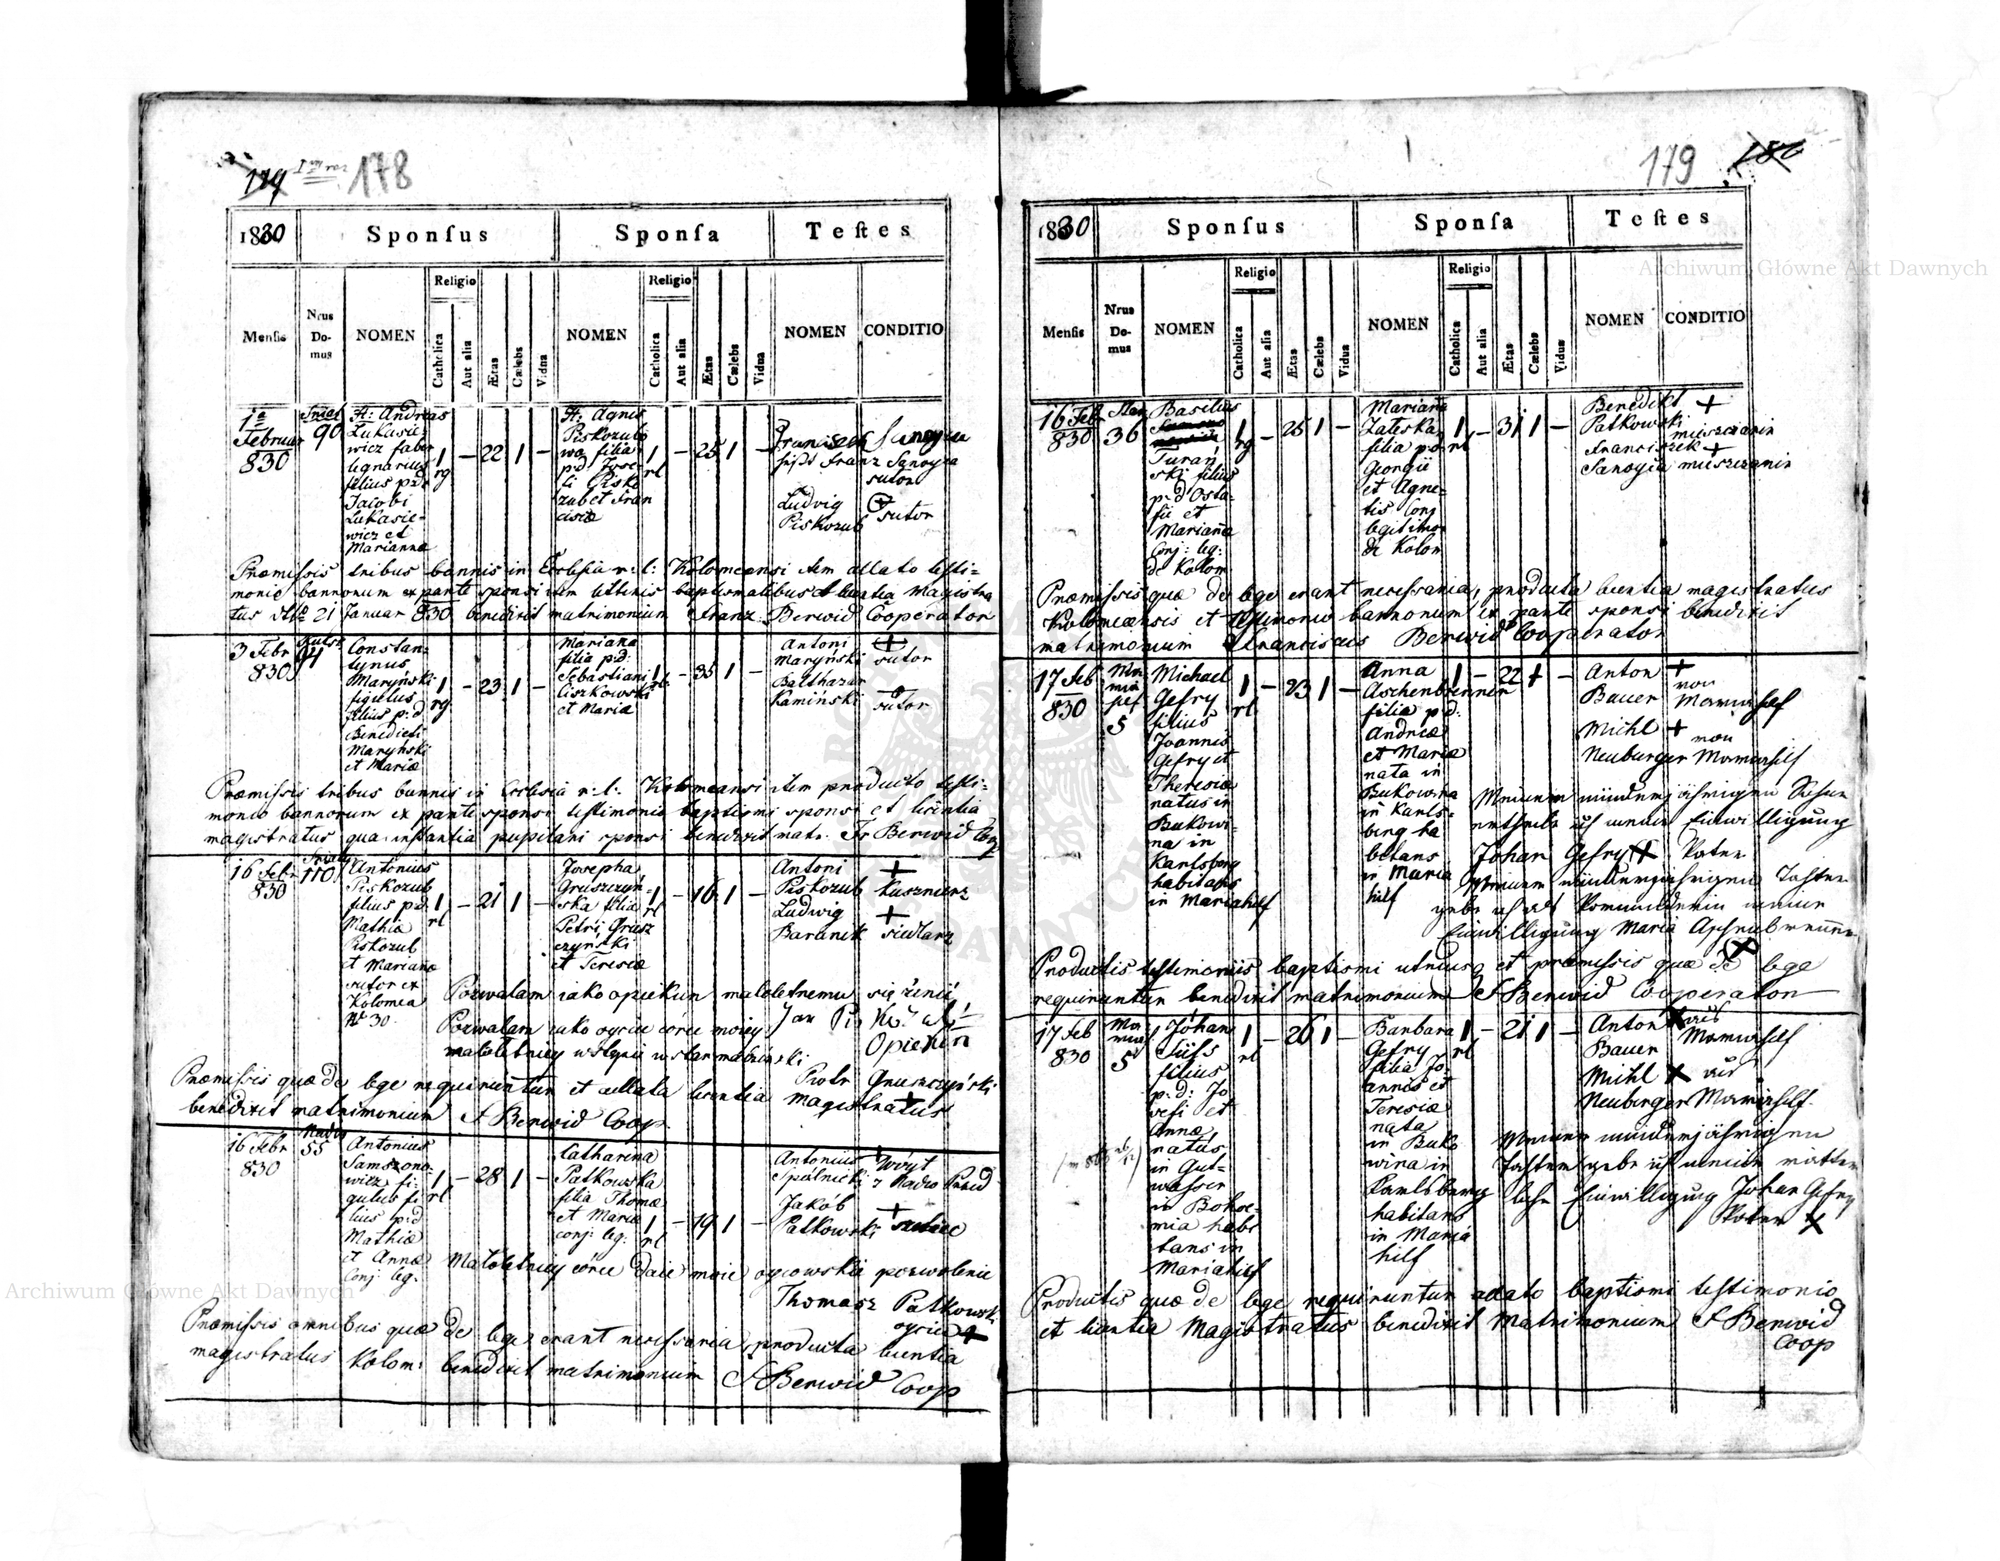 179 178
1830 Sponsus Sponsa Testes
Mensis Nrus Domus NOMEN Religio Catholica Aut alia Ætas Cælebs Vidua NOMEN Religio Catholica Aut alia Ætas Cælebs Vidua NOMEN CONDITIO
1a Februar 830
90
H: Andreas
Lukasie-
wicz faber
lignarius
filius p:d:
Jacobi
Lukasie-
wicz et
Marianna
1 rg – 22 1 –
H: Agnes
Piskozubo
wa filia
p:d: Jose-
fi Pisko
zub et Fran
cisca
1 rl – 25 1 –
Franciszek Sanoyca
Franz Sanoyca
sutor
Ludvig
Piskozub
sutor
Præmissis tribus bannis in Ecclesia r: l: Kolomeansi item allato testi-
monio bannorum ex parte sponsi item litteris baptismalibus et licentia Magistra
tus dtto 21 Januar 830 benedixit matrimonium Franz Berwid Cooperator
3 Febr 830
94
Constan-
tynus
Maryński
figulus
filius p:d:
Benedicti
Maryński
et Mariæ
1 rg – 23 1 –
Mariana
filia p:d:
Sebastiani
Ciszkowski
et Maria
1 rl – 35 1 –
Antoni +
Maryński sutor
Balthazar
Kamiński sutor
Præmissis tribus bannis in Ecclesia r: l: Kolomeansi item producto testi-
monio bannorum ex parte sponsi testimonio baptismi sponsi et licentia
magistratus qua instantia pupilari sponsi benedixit matr. Fr Berwid Coop
16 Febr 830
110
Antonius
Piskozub
filius p:d:
Mathia
Piskozub
et Marianæ
sutor ex
Kolomea
Nr 30.
1 rl – 21 1 –
Josepha
Gruszczyń-
ska filia
Petri Grusz
czyński
et Teresiæ
1 rl – 16 1 –
Antoni +
Piskozub kusznierz
Ludwig +
Baranek siedlarz
Pozwalam iako opiekun małoletnemu się żenić
Jan
Opiekun
Pozwalam iako oyciec córce moiey
małoletniey wstąpić w stan małżeński
Piotr Gruszczyński
+
Præmissis quæ de lege requiruntur et allata licentia magistratus
benedixit matrimonium F Berwid Coop.
16 Febr 830
55
Antonius
Samsono-
wicz fi-
gulus fi-
lius p:d:
Mathia
et Annæ
Conj leg.
1 rl – 28 1 –
Catharina
Patkowska
filia Thomæ
et Mariæ
conj: leg:
1 rl – 19 1 –
Antonius + Wóyt
Spólnicki z Nadwo
Jakób +
Patkowski
Małoletniey córce daie moie oycowskie pozwolenie
Thomasz Patkowski
oyciec +
Præmissis omnibus quæ de lege erant necessaria, producta licentia
magistratus Kolom: benedixit matrimonium F Berwid Coop
179 180
1830 Sponsus Sponsa Testes
Mensis Nrus Domus NOMEN Religio Catholica Aut alia Ætas Cælebs Vidua NOMEN Religio Catholica Aut alia Ætas Cælebs Vidua NOMEN CONDITIO
16 Feb 830
36
Basilius
Turań
ski filius
p:d: Osta-
fii et
Mariana
Conj: leg:
de Kolom
1 rg – 25 1 –
Mariana
Zaleska
filia p:d:
Georgii
et Agne-
tis Conj
legitimo
de Kolom
1 rl – 31 1 –
Benedikt +
Patkowski mieszczanin
Franciszek +
Sanoyca mieszczanin
Præmissis quæ de lege erant necessaria, producta licentia magistratus
Kolomeænsis et testimonio bannorum ex parte sponsi benedixit
matrimonium Franciscus Berwid Cooperator
17 Feb 830
5
Michael
Gefry
filius
Joannis
Gefry et
Theresiæ
natus in
Bukowi-
na in
Karlsberg
habitans
in Mariahilf
1 rl – 23 1 –
Anna
Aschenbrenner
filia p:d:
Andreæ
et Mariæ
nata in
Bukowina
in Karls-
berg ha
bitans
in Maria
hilf
1 – 22 1 –
Anton +
Bauer von Mariahilf
Michl +
Neuburger von Mariahilf
Meinem minderjährigen Sohne
ertheile ich meine Einwilligung
Johan Gefry + Vater
Meiner minderjährigen Tochter
gebe ich als Vormünderin meine
Einwilligung Maria Aschenbrenner
Productis testimoniis baptismi utriusq et præmissis quæ de lege
requiruntur benedixit matrimonium F Berwid Cooperator
17 Feb 830
5
Johan
Süss
filius
p:d: Jo
sefi et
Annæ
natus
in Gut-
wasser
in Bohoe-
mia habi
tans in
Mariahilf
1 rl – 26 1 –
Barbara
Gefry
filia Jo-
annis et
Teresiæ
nata
in Buko
wina in
Karlsberg
habitans
in Maria
hilf
1 rl – 21 1 –
Anton + aus
Bauer Mariahilf
Michl + aus
Neuberger Mariahilf.
Meiner minderjährigen
Tochter gebe ich meine väter
liche Einwilligung Johan Gefry
Vater +
Productis quæ de lege requiruntur adato baptismi testimonio
et licentia Magistratus benedixit Matrimonium F Berwid
Coop
Archiwum Główne Akt Dawnych
Archiwum Główne Akt Dawnych